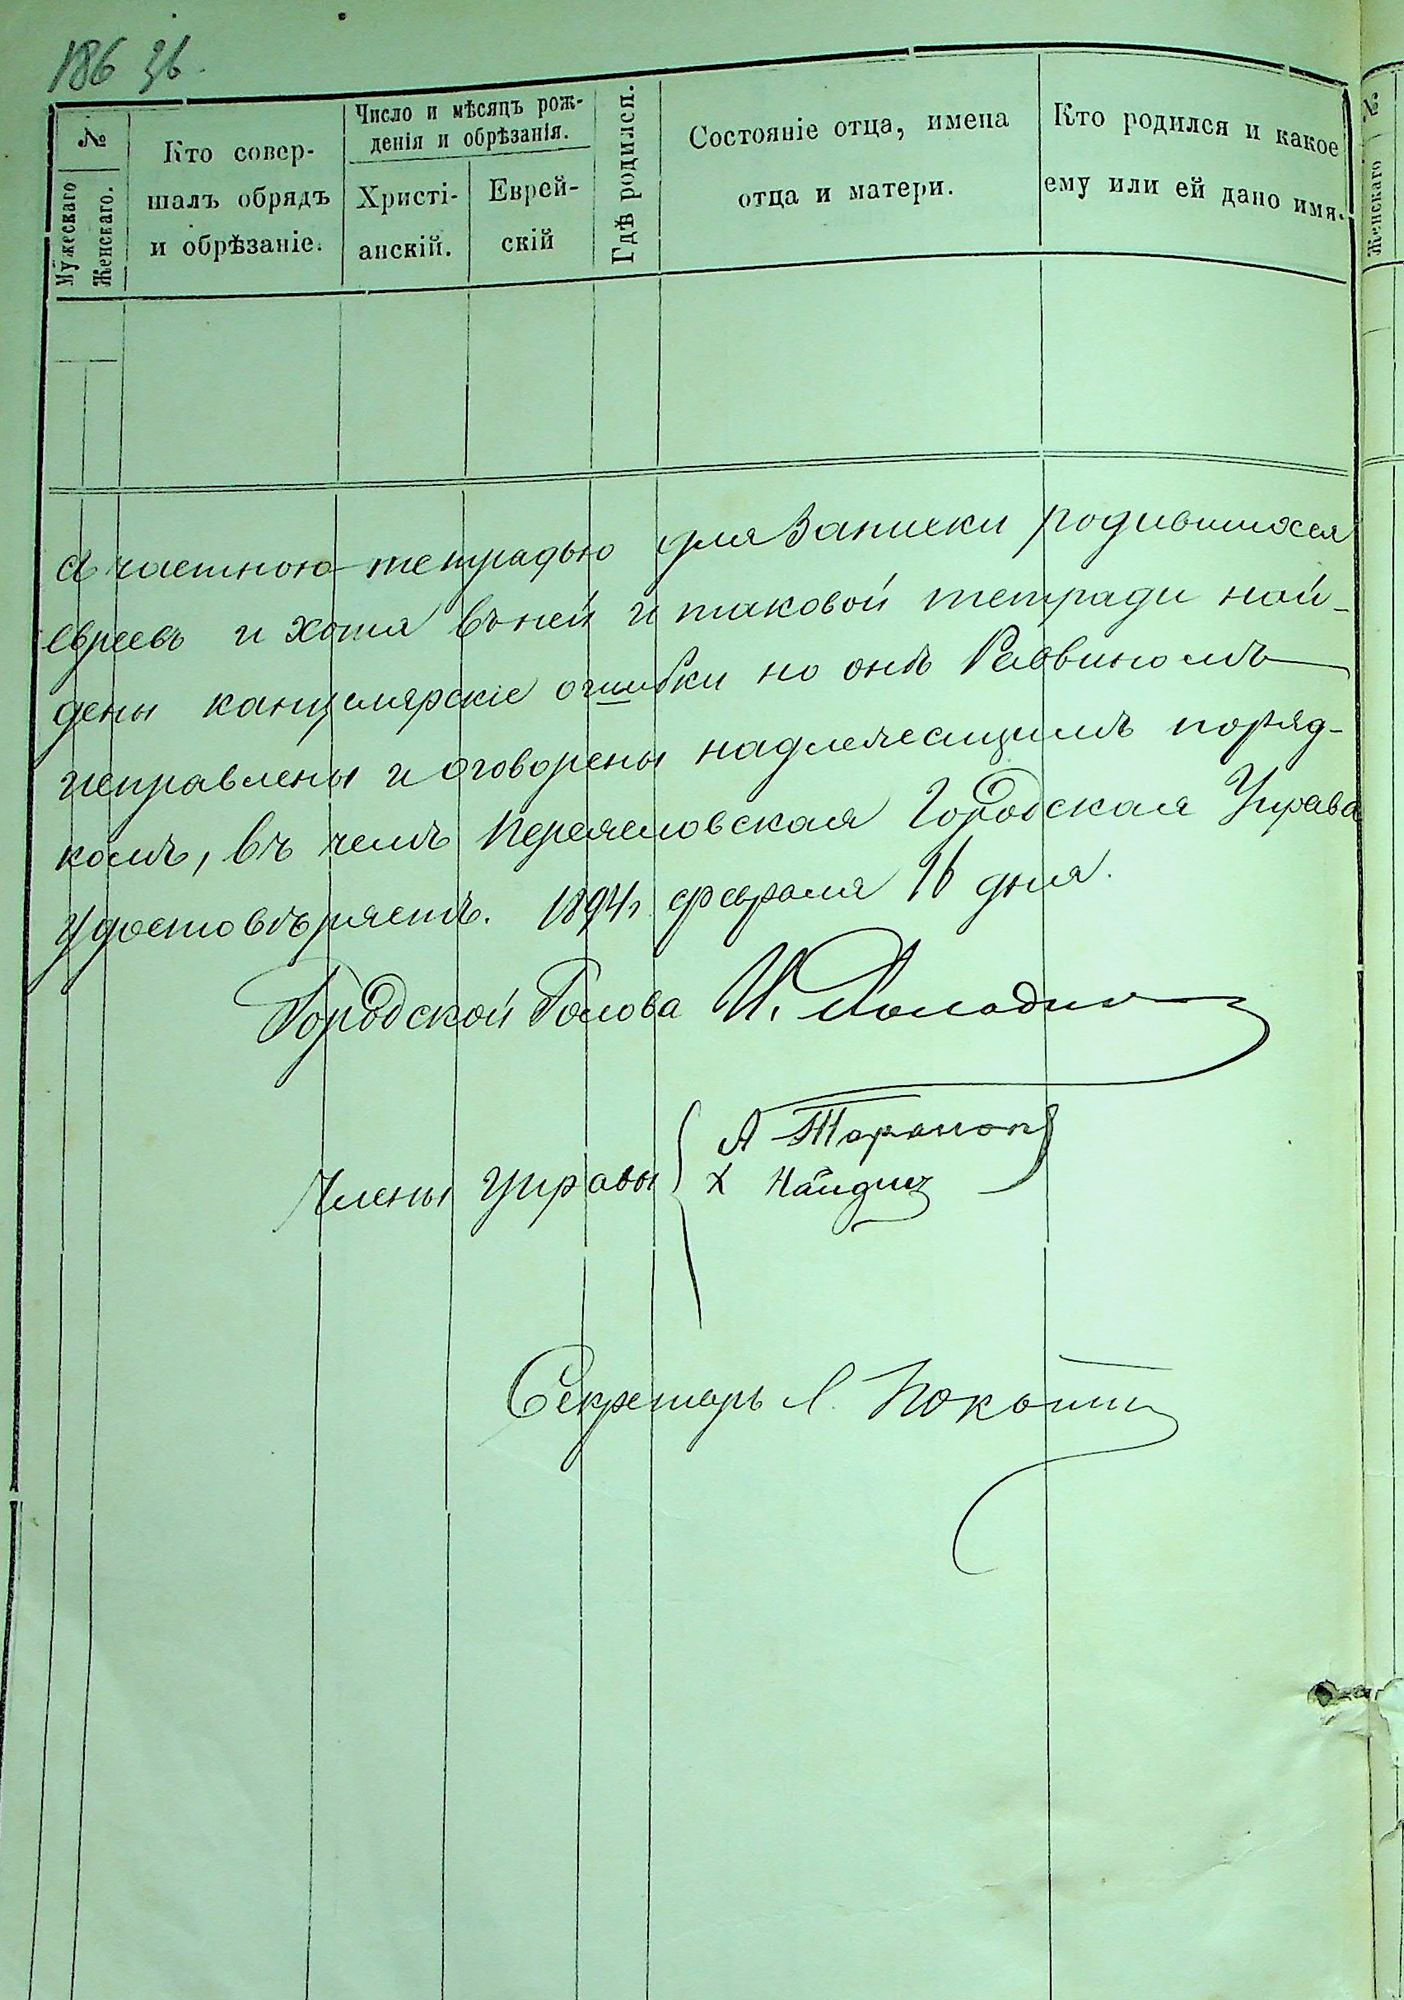 186 зв.
№
Мужескаго
Женскаго.
Кто совер-
шалъ обрядъ
и обрѣзаніе.
Число и мѣсяцъ рож-
денія и обрѣзанія.
Христі-
анскій.
Еврей-
скій
Гдѣ родился.
Состояніе отца, имена
отца и матери.
Кто родился и какое
ему или ей дано имя.
№
Женскаго
частною тетрадью для записки родившихся
евреевъ и хотя въ ней и таковой тетради най-
дены канцелярскіе ошибки но онѣ Раввиномъ
исправлены и оговорены надлежащимъ поряд-
комъ, въ чемъ Переяславская Городская Управа
удостовѣряетъ. 1894 г. февраля 16 дня.
Городской Голова И.
Члены управы
А
Х Найдич
Секретарь